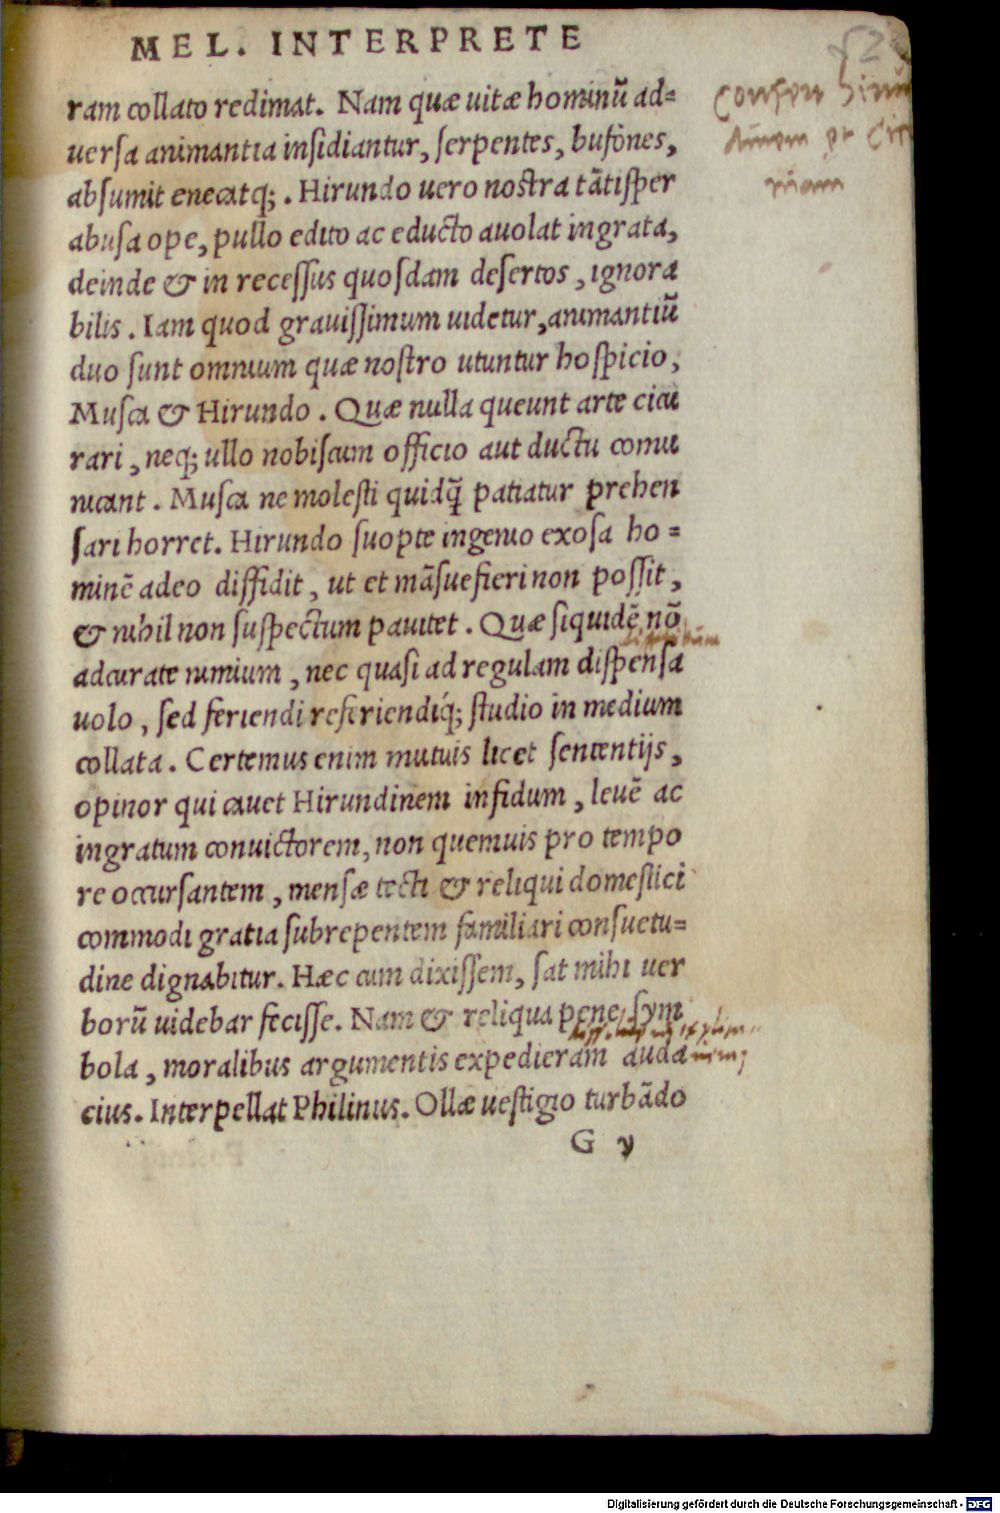 MEL. INTERPRETE
52
ram collato redimat. Nam quæ uitæ hominũ ad=
uersa animantia insidiantur, serpentes, bufones,
absumit enecatq;. Hirundo uero nostra tãtisper
abusa ope, pullo edito ac educto auolat ingrata,
deinde & in recessus quosdam desertos, ignora
bilis. Iam quod grauissimum uidetur, animantiũ
duo sunt omnium quæ nostro utuntur hospicio,
Musca & Hirundo. Quæ nulla queunt arte cicu
rari, neq; ullo nobiscum officio aut ductu comu
nicant. Musca ne molesti quidq̃ patiatur prehen
sari horret. Hirundo suopte ingenio exosa ho=
minẽ adeo diffidit, ut et mãsuefieri non possit,
& nihil non suspectum pauitet. Quæ siquidẽ nõ
adcurate nimium, nec quasi ad regulam dispensa
uolo, sed feriendi referiendiq́; studio in medium
collata. Certemus enim mutuis licet sententijs,
opinor qui cauet Hirundinem infidum, leuẽ ac
ingratum conuictorem, non quemuis pro tempo
re occursantem, mensæ tecti & reliqui domestici
commodi gratia subrepentem familiari consuetu=
dine dignabitur. Hæc cum dixissem, sat mihi uer
borũ uidebar fecisse. Nam & reliqua pene sym
bola, moralibus argumentis expedieram auda
cius. Interpellat Philinus. Ollæ uestigio turbãdo
G y